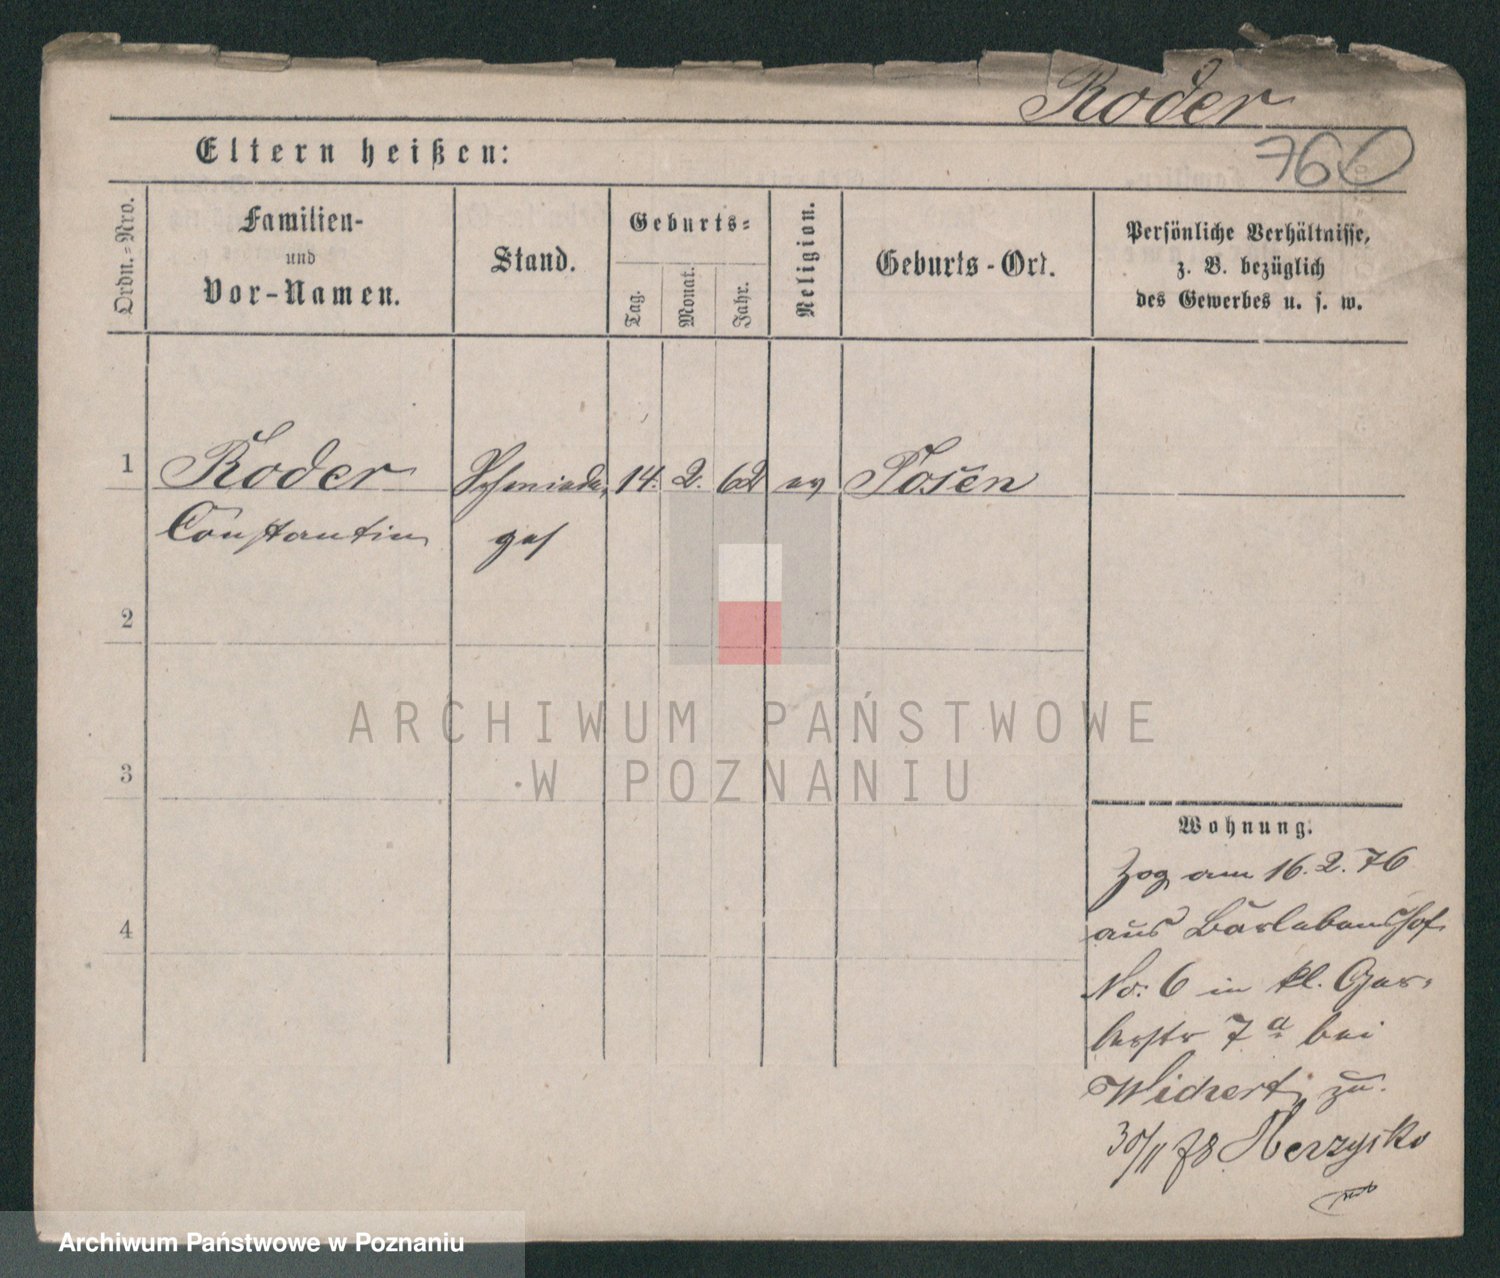 Roder
760
Eltern heißen:
Ordn.-Nro.
Familien-
und
Vor-Namen.
Stand.
Geburts-
Tag.
Monat.
Jahr.
Religion.
Geburts-Ort.
Persönliche Verhältnisse,
z. B. bezüglich
des Gewerbes u. s. w.
1 Roder Schmiede, 14. 2. 62 ev Posen
Constantin ges
2
ARCHIWUM PAŃSTWOWE
W POZNANIU
3
Wohnung.
Zog am 16. 2. 76
4
aus Barlebenshof
No: 6 in kl. Ger-
berstr 7a bei
Wichert zu.
30/11 78
Archiwum Państwowe w Poznaniu